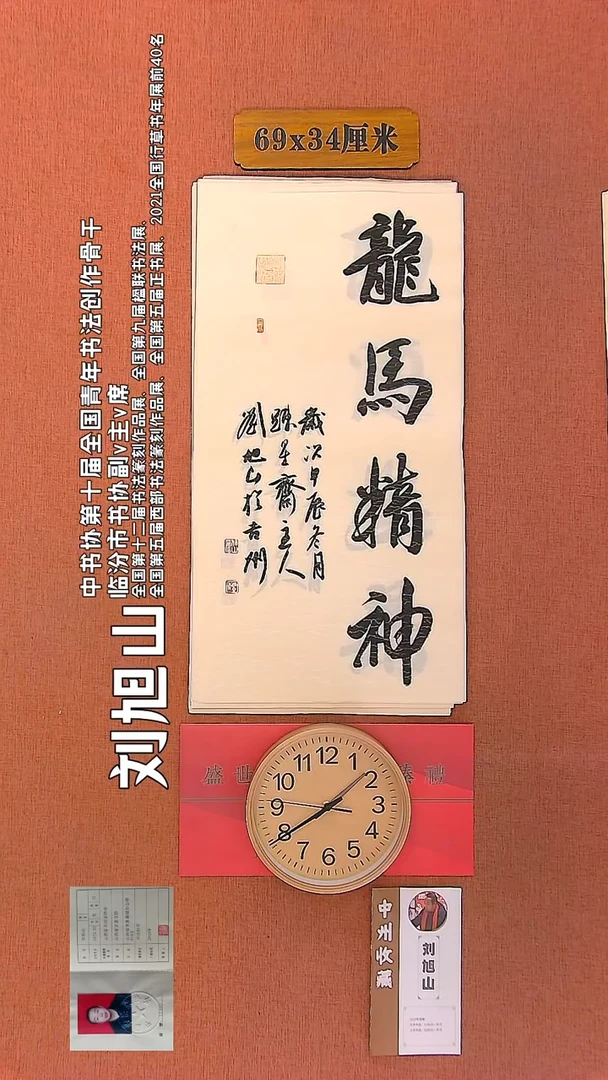 69x34厘米
龍馬精神
歲次甲辰冬月
齋主人
劉旭山於吉州
刘旭山
中书协第十届全国青年书法创作骨干
临汾市书协副v主v席
全国第十二届书法篆刻作品展、全国第九届楹联书法展、
全国第五届西部书法篆刻作品展、全国第五届正书展、2021全国行草书年展前40名
盛世
禮
12
1
2
3
4
5
6
7
8
9
10
11
刘旭山